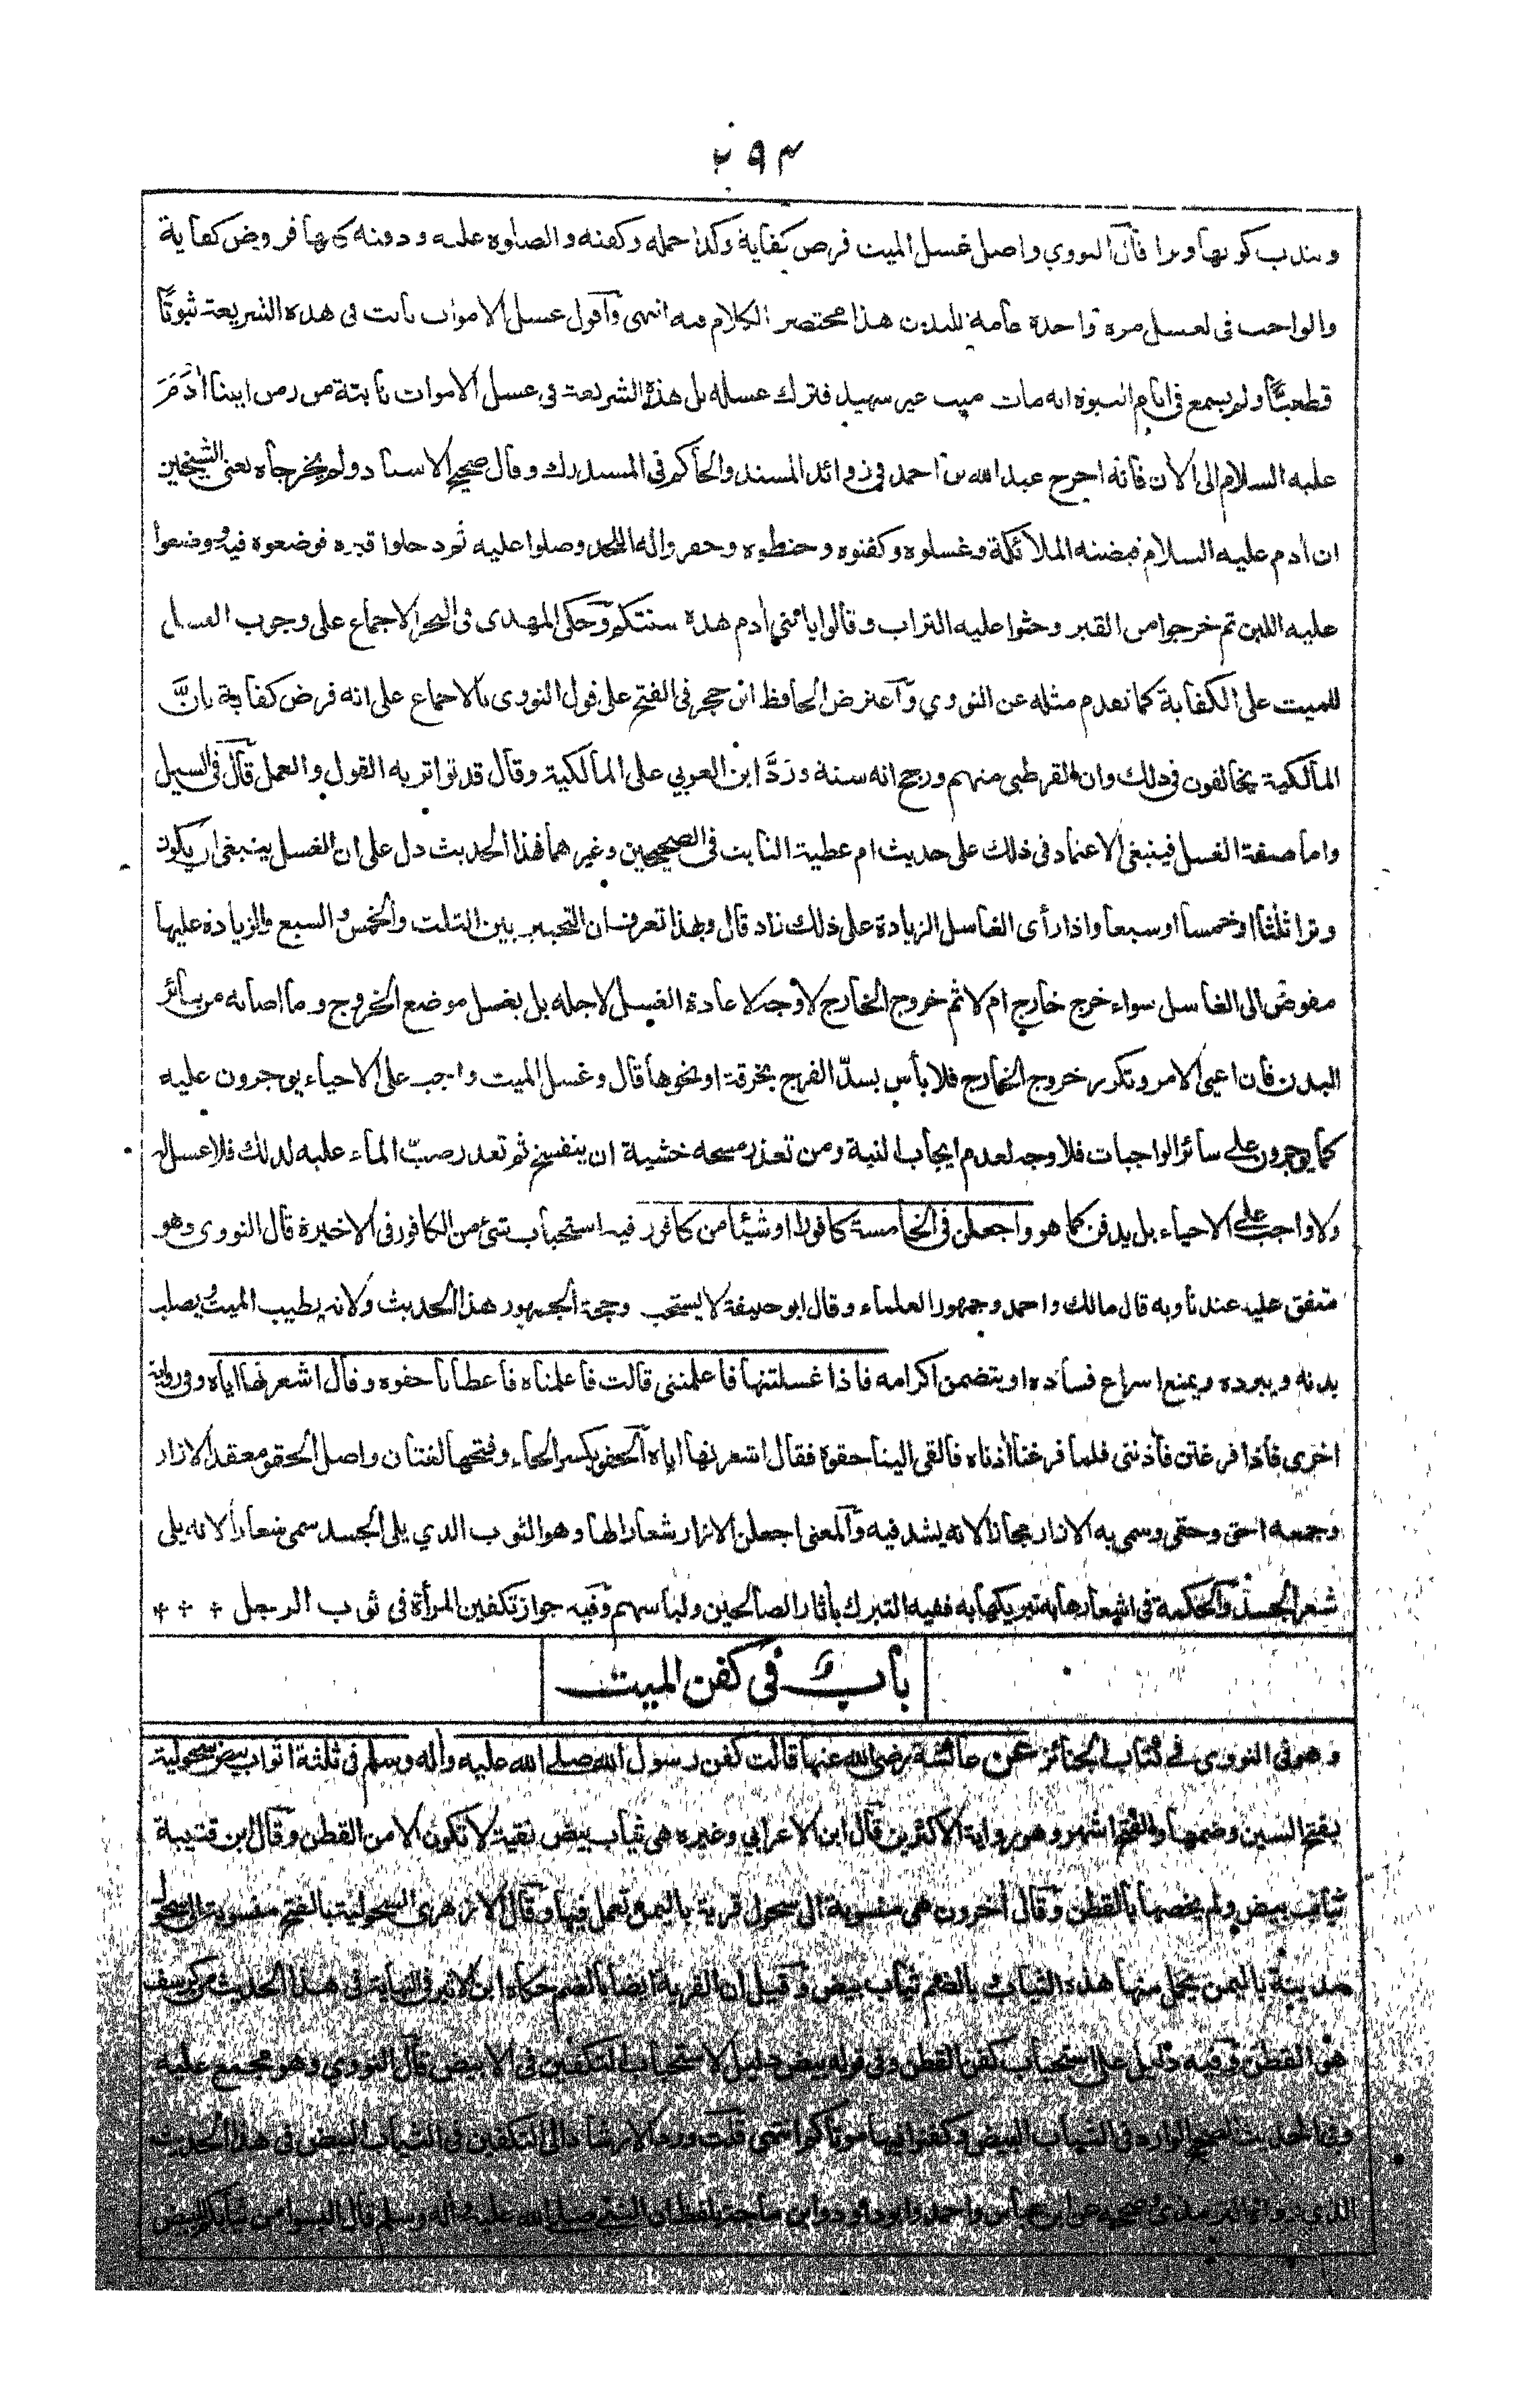 ٢٩٤
ويندب كونها وترا قال النووي واصل غسل الميت فرض كفاية وكذا حمله وكفنه والصلوة عليه ودفنه كلها فروض كفاية
والواجب فى الغسل مرة واحدة عامة للبدن هذا مختصر الكلام فيه انتهى وآقول غسل الاموات ثابت فى هذه الشريعة ثبوتًا
قطعيًّا ولم يسمع فى ايام النبوة انه مات ميت غير شهيد فترك غسله بل هذه الشريعة في غسل الاموات ثابتة من زمن ابينا اٰدَمَ
عليه السلام الى الأن فانه اخرج عبد الله بن احمد فى زوائد المسند والحاكم فى المستدرك وقال صحيح الاسناد ولم يخرجاه يعنى الشيخين
ان اٰدم عليه السلام قبضته الملائكة وغسلوه وكفنوه وحنطوه وحفروا له اللحد وصلوا عليه ثم دخلوا قبره فوضعوه فيه ووضعوا
عليه اللبن ثم خرجوا من القبر وحثوا عليه التراب وقالوا يا بنى اٰدم هذه سنتكم وحكى المهدى فى البحر الاجماع على وجوب الغسل
للميت على الكفاية كما تقدم مثله عن النووي وآعترض الحافظ ابن حجر فى الفتح على قول النووى بالاجماع على انه فرض كفاية بانَّ
المالكية يخالفون فى ذلك وان القرطبى منهم ورجح انه سنة وردَّ ابن العربي على المالكية وقال قد تواتر به القول والعمل قال فى السيل
واما صفة الغسل فينبغى الاعتماد فى ذلك على حديث ام عطية الثابت فى الصحيحين وغيرهما فهذا الحديث دل على ان الغسل ينبغى ان يكون
وترا ثلثا او خمسا او سبعا واذا رأى الغاسل الزيادة على ذلك زاد قال وبهذا تعرف ان التخيير بين الثلث والخمس والسبع والزيادة عليها
مفوض الى الغاسل سواء خرج خارج ام لا ثم خروج الخارج لا وجه لاعادة الغسل لاجله بل يغسل موضع الخروج وما اصابه من سائر
البدن فان اعيى الامر وتكرر خروج الخارج فلا بأس بسدّ الفرج بخرقة او نحوها قال وغسل الميت واجب على الاحياء يوجرون عليه
كما يوجرون على سائر الواجبات فلا وجه لعدم ايجاب النية ومن تعذر مسحه خشية ان يتفسخ ثم تعذر صبّ الماء عليه لذلك فلا غسل له
ولا واجب على الاحياء بل يدفن كما هو واجعلن فى الخامسة كافورا او شيئا من كافور فيه استحباب شئ من الكافور فى الاخيرة قال النووى وهو
متفق عليه عندنا وبه قال مالك واحمد وجمهور العلماء وقال ابو حنيفة لا يستحب وحجة الجمهور هذا الحديث ولانه يطيب الميت ويصلب
بدنه ويبرده ويمنع اسراع فساده او يتضمن اكرامه فاذا غسلتنها فاعلمننى قالت فاعلمناه فاعطانا حقوه وقال اشعرنها اياه وفى رواية
اخرى فاذا فرغتن فاٰذننى فلما فرغنا اٰذناه فالقى الينا حقوه فقال اشعرنها اياه الحقو بكسر الحاء وفتحها لغتان واصل الحقو معقد الازار
وجمعه احق وحقى وسمى به الازار مجازا لانه يشد فيه والمعنى اجعلن الازار شعارا لها وهو الثوب الذي يلى الجسد سمى شعارا لانه يلى
شعر الجسد والحكمة فى اشعارها به تبريكها به ففيه التبرك باٰثار الصالحين ولباسهم وفيه جواز تكفين المرأة فى ثوب الرجل
باب فى كفن الميت
وهو فى النووى فى كتاب الجنائز عن عائشة رضى الله عنها قالت كفن رسول الله صلى الله عليه واٰله وسلم فى ثلثة اثواب بيض سحولية
بفتح السين وضمها والفتح اشهر وهو رواية الاكثرين قال ابن الاعرابي وغيره هى ثياب بيض نقية لا تكون الا من القطن وقال ابن قتيبة
ثياب بيض ولم يخصها بالقطن وقال اٰخرون هى منسوبة الى سحول قرية باليمن تعمل فيها وقال الازهرى السحولية بالفتح منسوبة الى سحول
مدينة باليمن يحمل منها هذه الثياب بالضم ثياب بيض وقيل ان القرية ايضا بالضم حكاه ابن الاثير فى النهاية فى هذا الحديث من كرسف
هو القطن وفيه دليل على استحباب كفن القطن وفى قوله بيض دليل لاستحباب التكفين فى الابيض قال النووي وهو مجمع عليه
وفى الحديث الصحيح الوارد فى الثياب البيض وكفنوا فيها موتاكم انتهى قلت ورد الارشاد الى التكفين فى الثياب البيض فى هذا الحديث
الذي رواه الترمذى وصححه عن ابن عباس واحمد وابو داود وابن ماجة بلفظ ان النبى صلى الله عليه واٰله وسلم قال البسوا من ثيابكم البيض